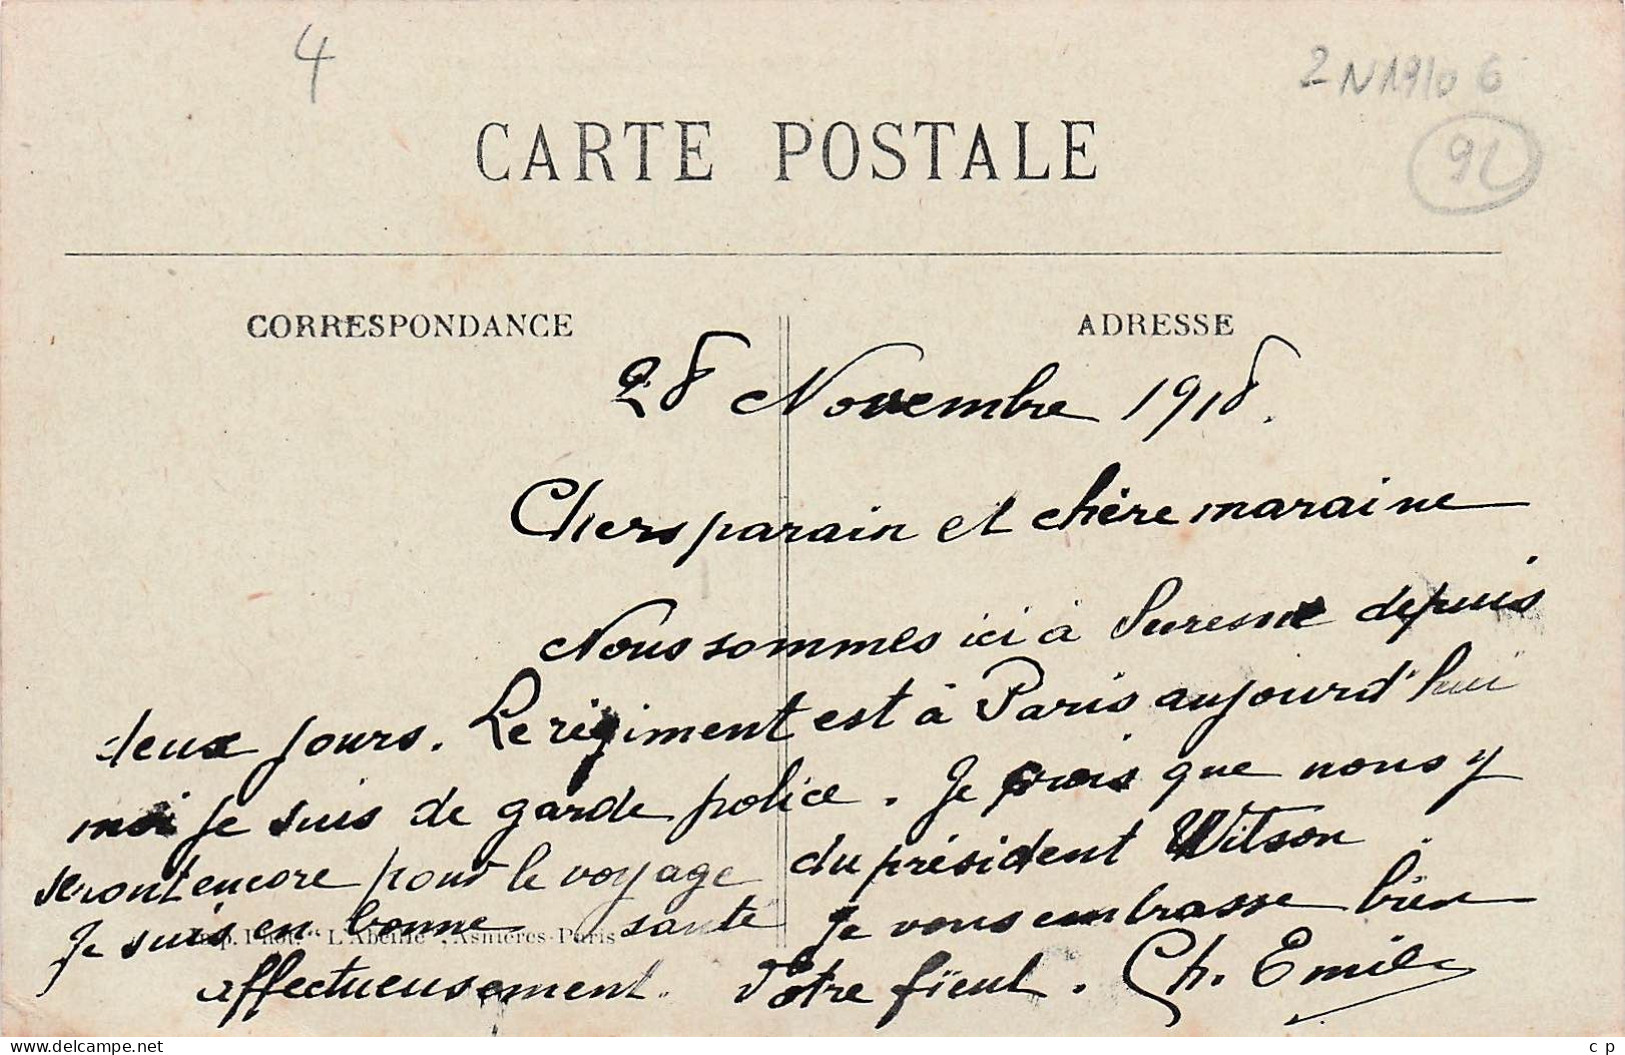 4
2N1910 6
92
CARTE POSTALE
CORRESPONDANCE
ADRESSE
28 Novembre 1918.
Chers parain et chère maraine
Nous sommes ici à Suresne depuis
deux jours. Le régiment est à Paris aujourd'hui
moi je suis de garde police. Je crois que nous y
seront encore pour le voyage du président Wilson.
Je suis en bonne santé Je vous embrasse bien
Phot. "L'Abeille", Asnières-Paris
affectueusement. Votre fieul. Ch. Emile
www.delcampe.net
c p